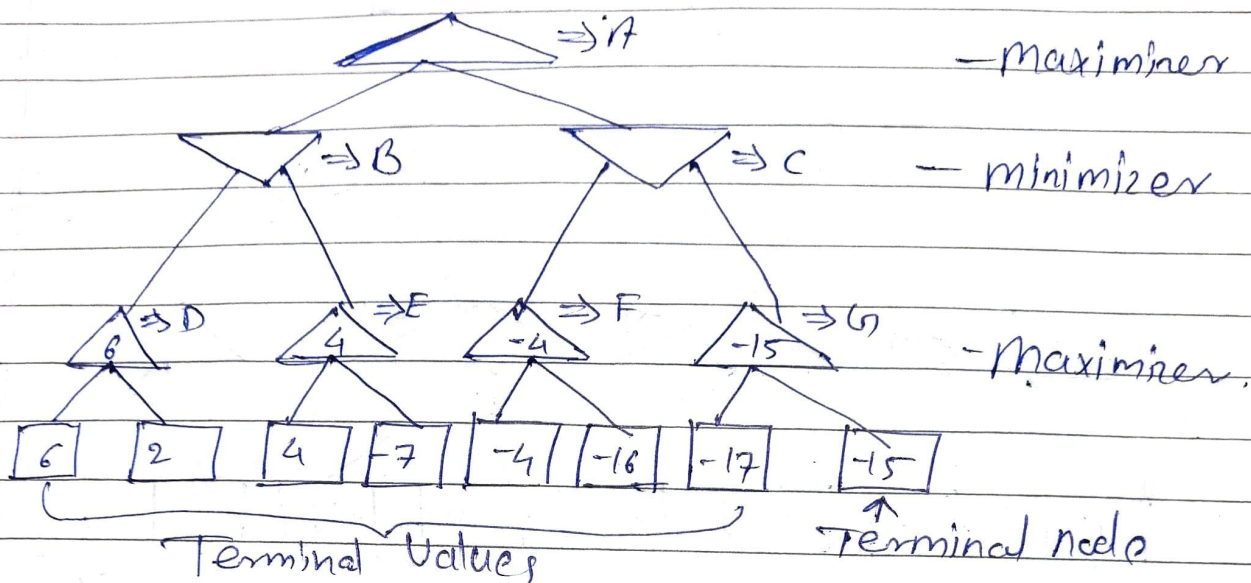 ⇒ A
- maximizer
⇒ B ⇒ C - minimizer
⇒ D ⇒ E ⇒ F ⇒ G
6 4 -4 -15 - Maximizer.
6 2 4 -7 -4 -16 -17 -15
Terminal Values Terminal node